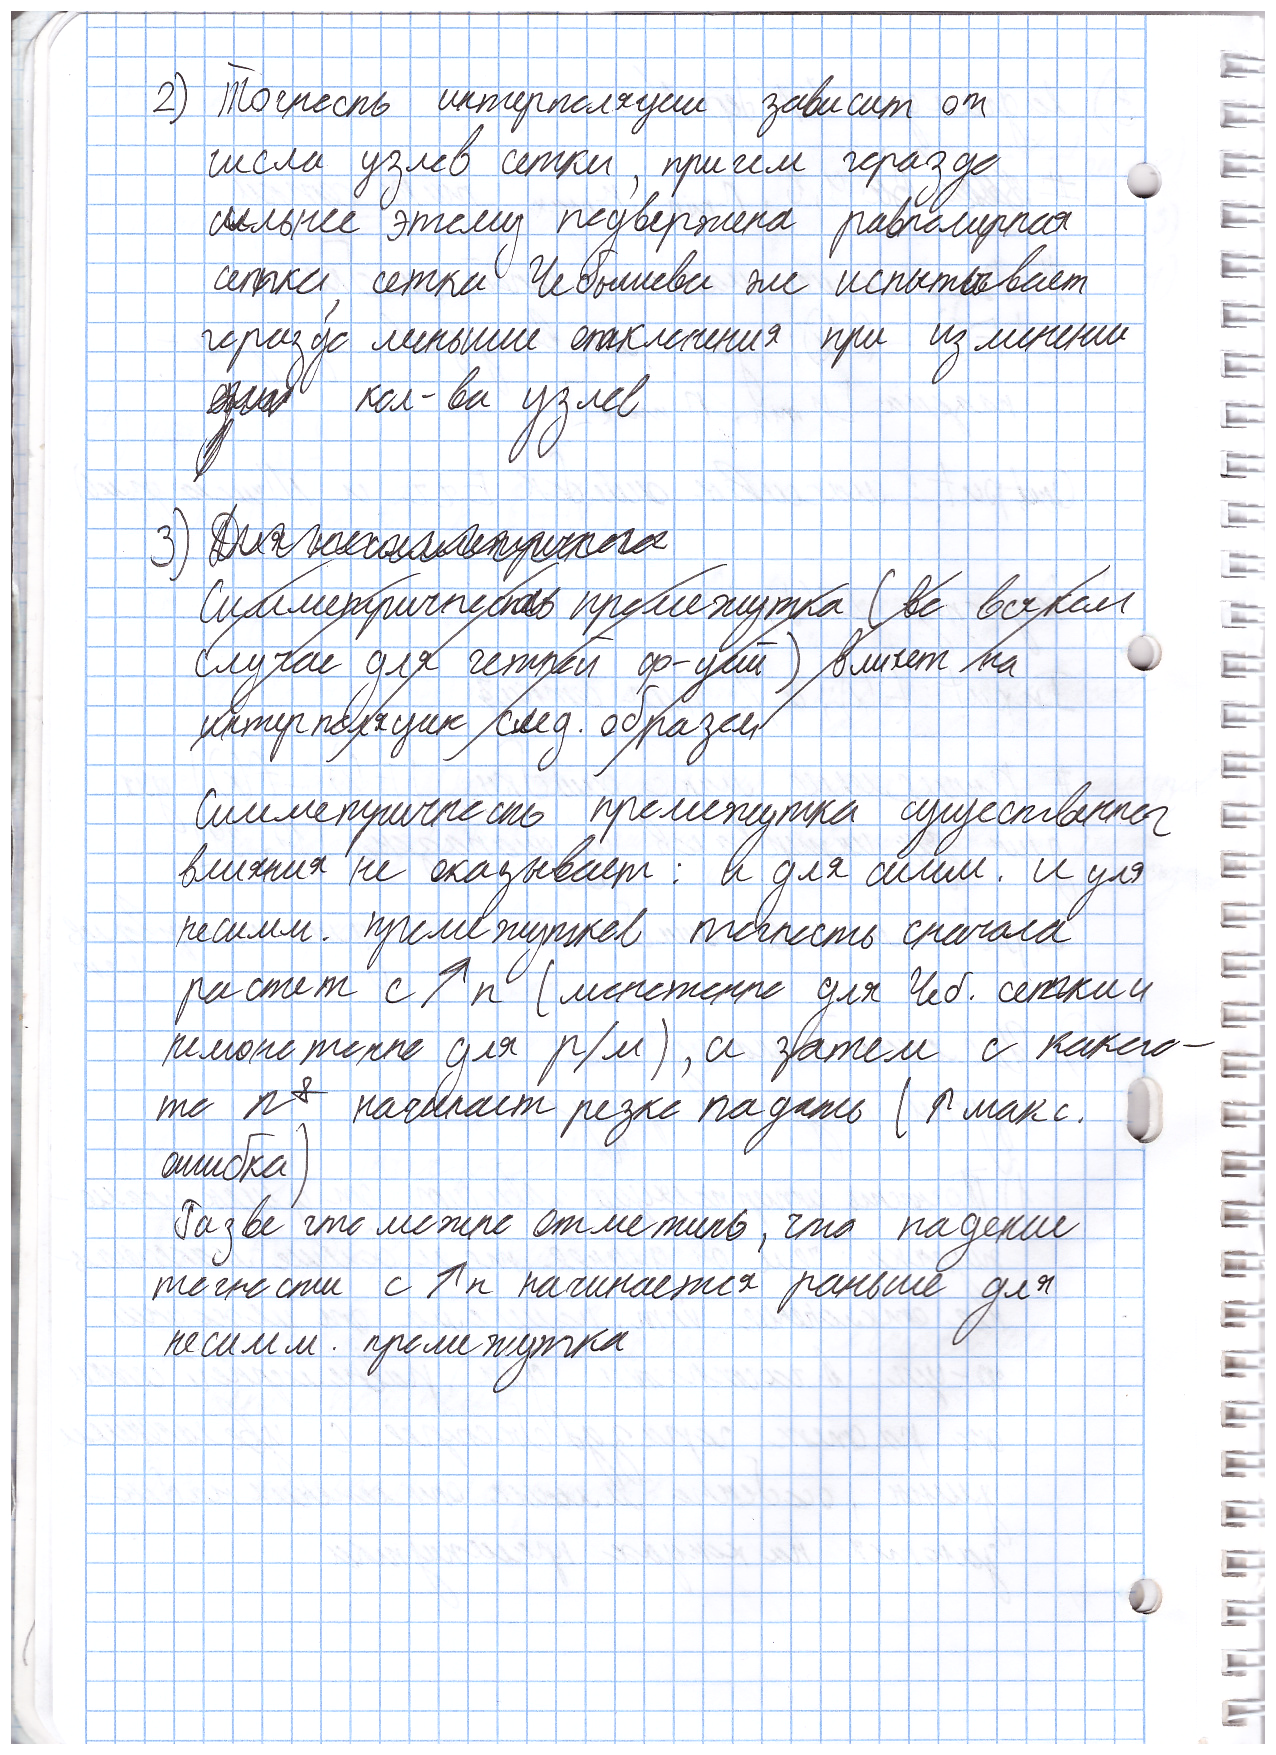 2) Точность интерполяции зависит от
числа узлов сетки, причем гораздо
сильнее этому подвержена равномерная
сетка, сетка Чебышева же испытывает
гораздо меньшие отклонения при изменении
кол-ва узлов
3)
Симметричность промежутка (во всяком
случае для четной ф-ций) влияет на
интерполяцию след. образом
Симметричность промежутка существенного
влияния не оказывает: и для симм. и для
несимм. промежутков точность сначала
растет с ↑n (монотонно для Чеб. сетки и
немонотонно для р/м), а затем с какого-
то n* начинает резко падать (↑ макс.
ошибка)
Разве что можно отметить, что падение
точности с ↑n начинается раньше для
несимм. промежутка